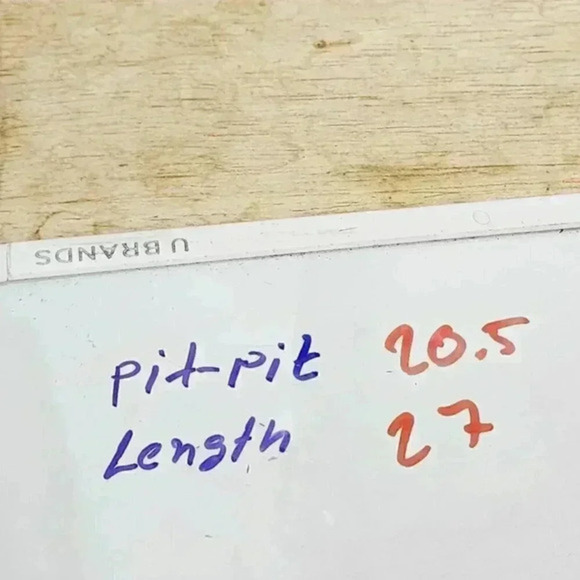 U BRANDS
pit-pit 20.5
Length 27